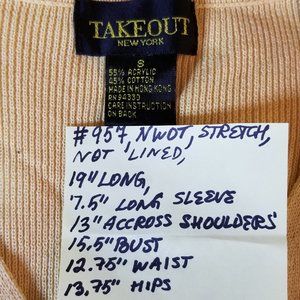 TAKEOUT
NEW YORK
S
55% ACRYLIC
45% COTTON
MADE IN HONG KONG
CARE INSTRUCTION
ON BACK
#957, NWOT, STRETCH,
NOT LINED,
19" LONG,
7.5" LONG SLEEVE
13" ACCROSS SHOULDERS
15.5" BUST
12.75" WAIST
13.75" HIPS